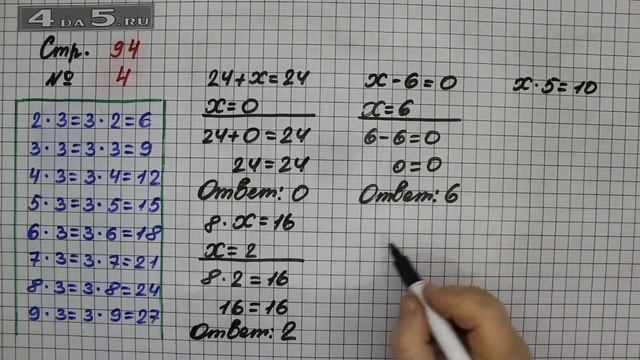 4 DA 5.RU
Стр. 94
№ 4
2·3=3·2=6
3·3=3·3=9
4·3=3·4=12
5·3=3·5=15
6·3=3·6=18
7·3=3·7=21
8·3=3·8=24
9·3=3·9=27
24+x=24
x=0
24+0=24
24=24
Ответ: 0
8·x=16
x=2
8·2=16
16=16
Ответ: 2
x-6=0
x=6
6-6=0
0=0
Ответ: 6
x·5=10